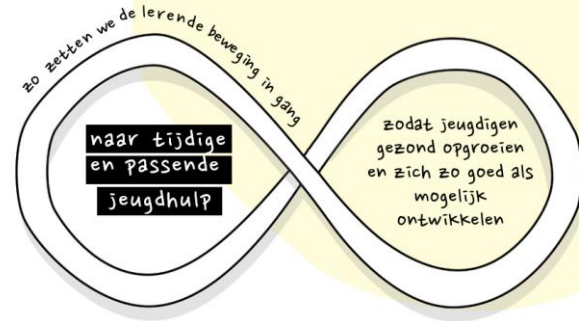 zo zetten we de lerende beweging in gang
naar tijdige
en passende
jeugdhulp
zodat jeugdigen
gezond opgroeien
en zich zo goed als
mogelijk
ontwikkelen